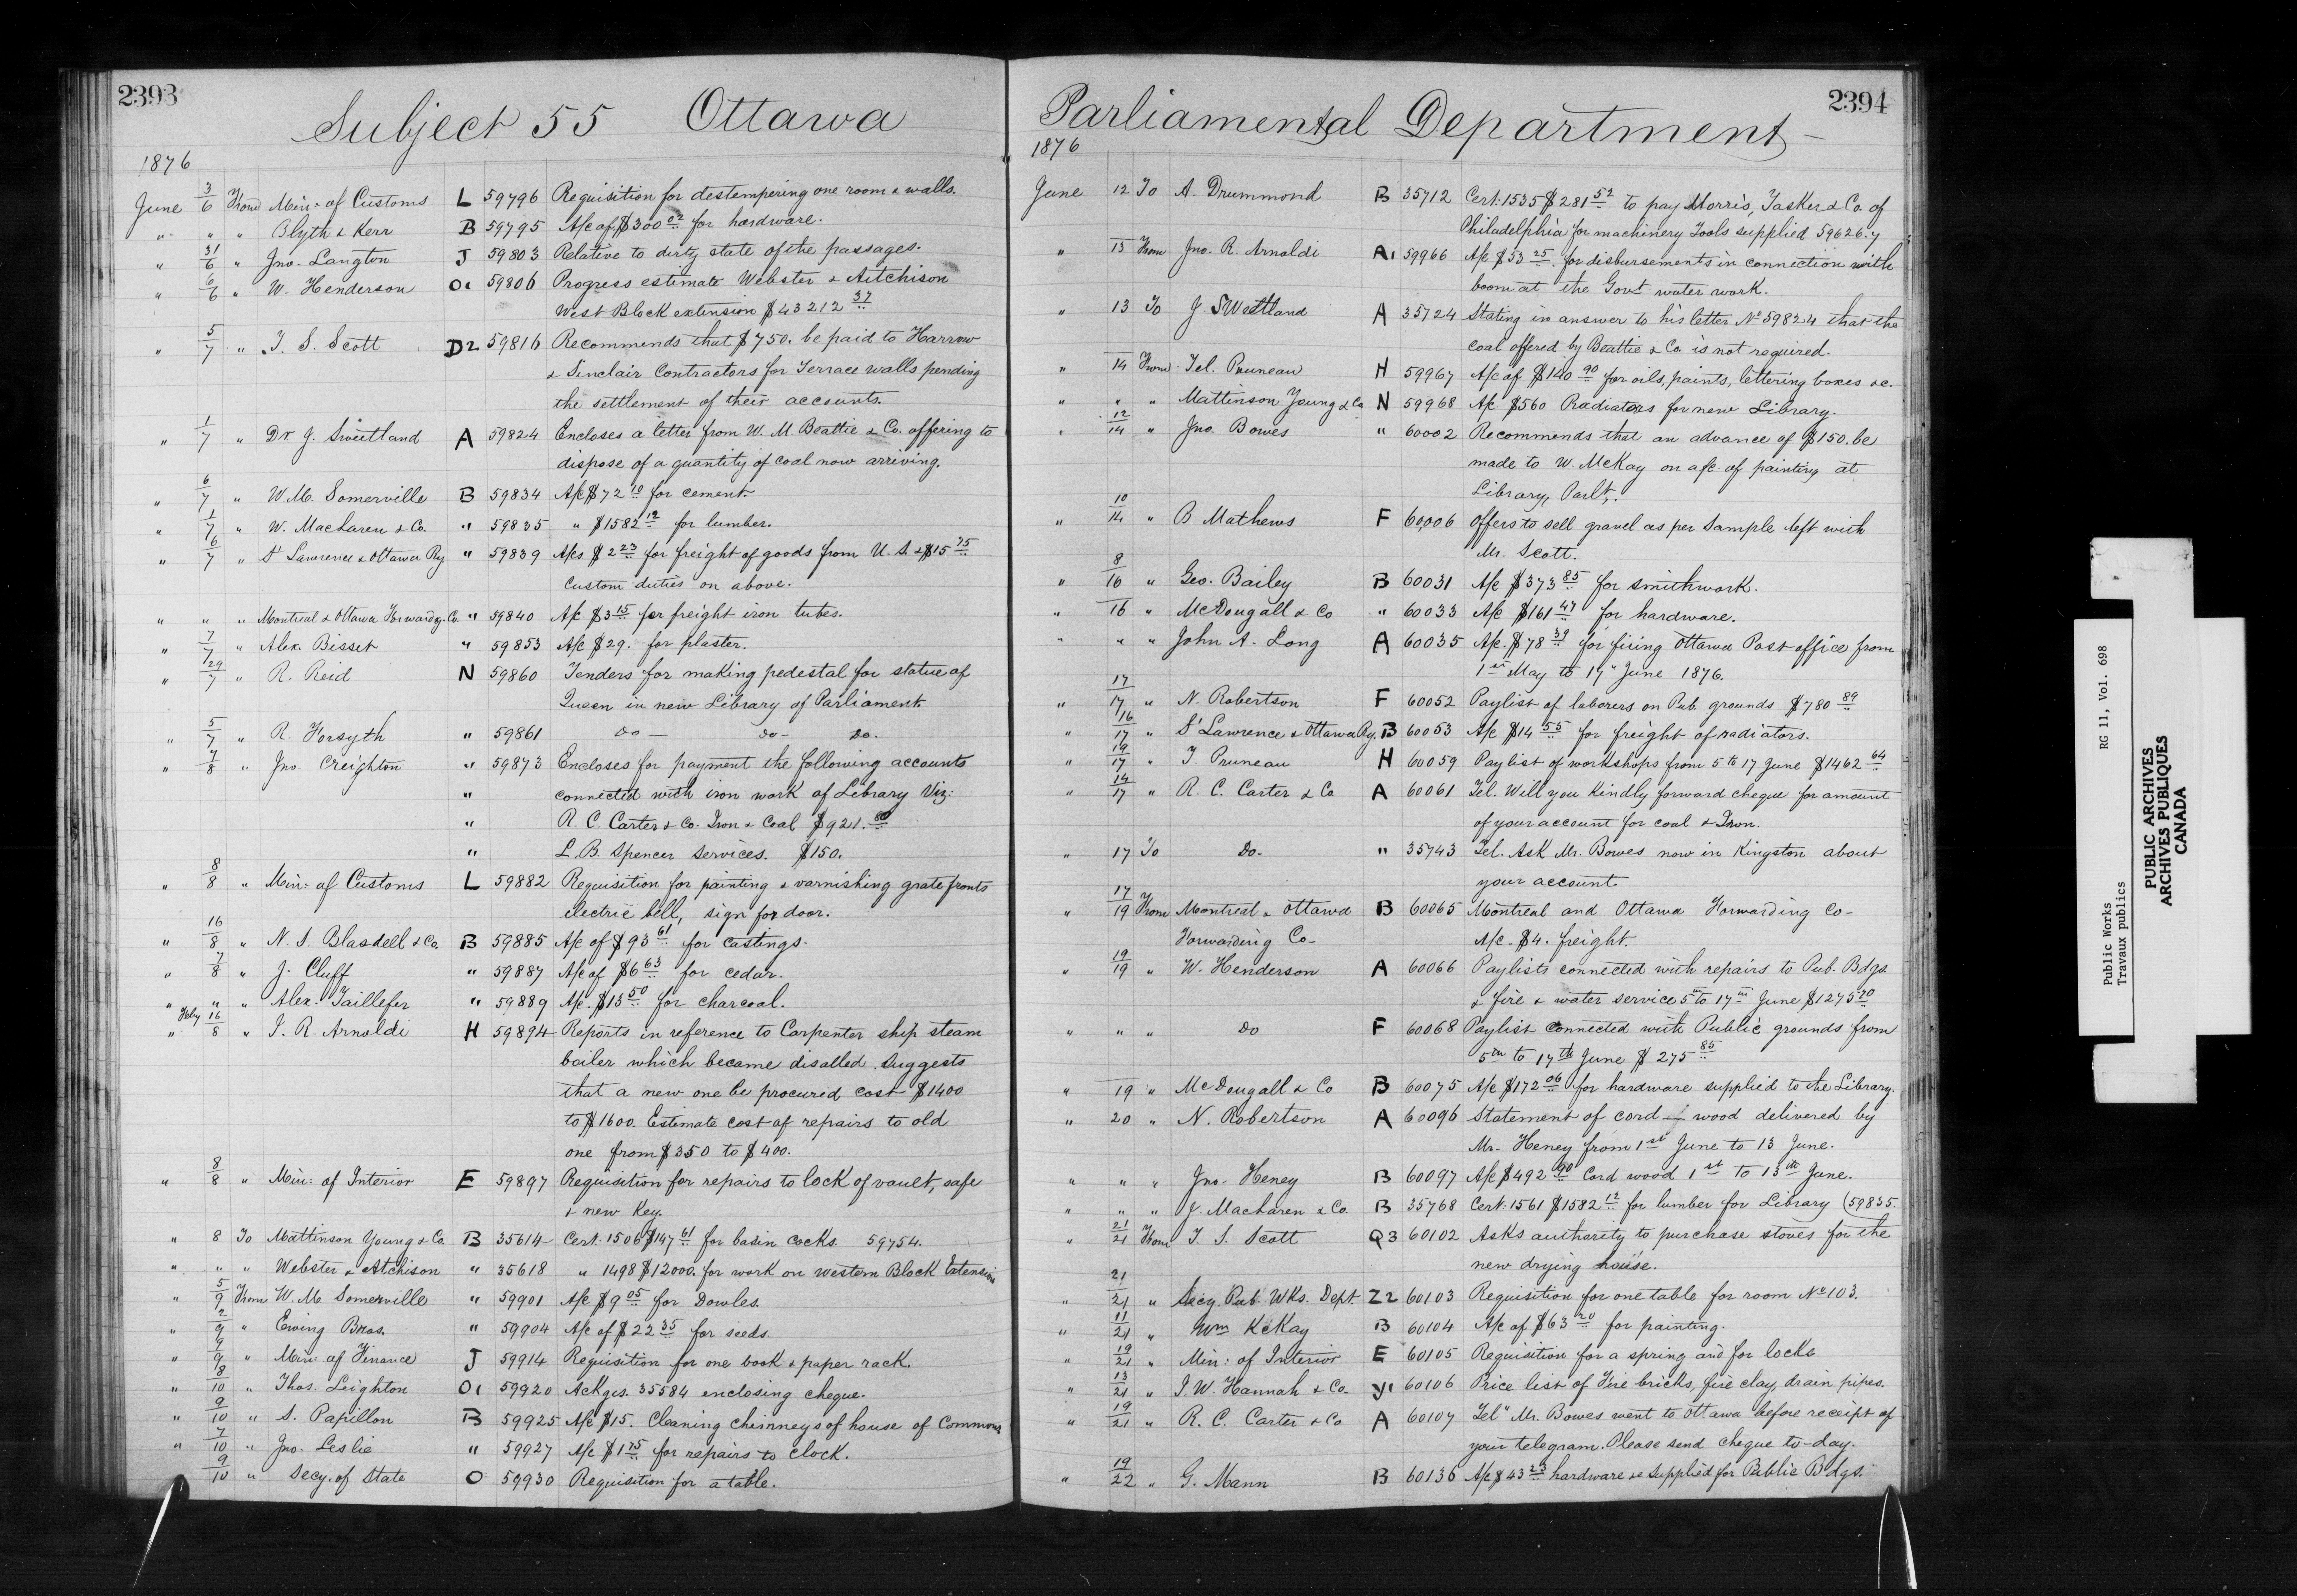 2393
Subject 55 Ottawa
1876
June 3/6 From Min: of Customs L 59796 Requisition for destempering one room & walls.
" " " Blyth & Kerr B 59795 A/c of $300 02 for hardware.
" 31/6 " Jno. Langton J 59803 Relative to dirty state of the passages.
" 6/6 " W. Henderson O1 59806 Progress estimate Webster & Aitchison
West Block extension $43212 37
" 5/7 " T. S. Scott D2 59816 Recommends that $750. be paid to Harrow
& Sinclair Contractors for Terrace walls pending
the settlement of their accounts.
" 1/7 " Dr J. Sweetland A 59824 Encloses a letter from W. M. Beattie & Co. offering to
dispose of a quantity of coal now arriving.
" 6/7 " W. M. Somerville B 59834 A/c $72 10 for cement.
" 1/7 " W. MacLaren & Co. " 59835 " $1582 12 for lumber.
" 6/7 " St Lawrence & Ottawa Ry " 59839 A/cs $2 23 for freight of goods from U. S. & $15 75
Custom duties on above.
" " " Montreal & Ottawa Forwardg. Co. " 59840 A/c $3 15 for freight iron tubes.
" 7/7 " Alex. Bisset " 59853 A/c $29. for plaster.
" 29/7 " R. Reid N 59860 Tenders for making pedestal for statue of
Queen in new Library of Parliament
" 5/7 " R. Forsyth " 59861 do - do - do.
" 7/8 " Jno. Creighton " 59873 Encloses for payment the following accounts
" connected with iron work of Library Viz:
" R. C. Carter & Co. Iron & Coal $921. 80
" L. B. Spencer Services. $150.
" 8/8 " Min: of Customs L 59882 Requisition for painting & varnishing grate fronts
electric bell, sign for door.
" 16/8 " N. S. Blasdell & Co. B 59885 A/c of $93 61 for castings.
" 7/8 " J. Cluff " 59887 A/c of $6 63 for cedar.
" " " Alex. Taillefer " 59889 A/c. $13 50 for charcoal.
" Feby 16/8 " J. R. Arnoldi H 59894 Reports in reference to Carpenter shop steam
boiler which became disalled. Suggests
that a new one be procured cost $1400
to $1600. Estimate cost of repairs to old
one from $350 to $400.
" 8/8 " Min: of Interior E 59897 Requisition for repairs to lock of vault, safe
& new Key.
" 8 To Mattinson Young & Co. B 35614 Cert. 1506 $147 61 for basin cocks. 59754.
" " " Webster & Atchison " 35618 " 1498 $12000. for work on Western Block Extension
" 5/9 From W. M. Somerville " 59901 A/c $9 05 for Dowles.
" 2/9 " Ewing Bros. " 59904 A/c of $22 35 for seeds.
" 9/9 " Min: of Finance J 59914 Requisition for one book & paper rack.
" 8/10 " Thos. Leighton O1 59920 Ackgs. 35584 enclosing cheque.
" 9/10 " S. Papillon B 59925 A/c $15. Cleaning chimneys of house of Commons
" 7/10 " Jno. Leslie " 59927 A/c $1 75 for repairs to clock.
" 9/10 " Secy. of State O 59930 Requisition for a table.
2394
Parliamental Department
1876
June 12 To A. Drummond B 35712 Cert. 1535 $281 52 to pay Morris, Tasker & Co. of
Philadelphia for machinery Tools supplied 59626.7
" 13 From Jno. R. Arnoldi A1 59966 A/c $53 25 for disbursements in connection with
boom at the Govt water work.
" 13 To J. Swettland A 35724 Stating in answer to his letter No 59824 that the
coal offered by Beattie & Co is not required.
" 14 From Tel. Pruneau H 59967 A/c of $140 90 for oils, paints, lettering boxes &c.
" " " Mattinson Young & Co N 59968 A/c $560 Radiators for new Library.
" 12/14 " Jno. Bowes " 60002 Recommends that an advance of $150. be
made to W. McKay on a/c of painting at
Library, Parlt.
" 10/14 " B Mathews F 60006 Offers to sell gravel as per Sample left with
Mr. Scott.
" 8/16 " Geo. Bailey B 60031 A/c $373 85 for smithwork.
" 16 " McDougall & Co " 60033 A/c $161 47 for hardware.
" " " John A. Long A 60035 A/c. $78 39 for firing Ottawa Post office from
1st May to 17" June 1876.
" 17/17 " N. Robertson F 60052 Paylist of laborers on Pub. grounds $780 89
" 16/17 " St Lawrence & Ottawa Ry. B 60053 A/c $14 55 for freight of radiators.
" 19/17 " T. Pruneau H 60059 Paylist of workshops from 5 to 17 June $1462 64
" 14/17 " R. C. Carter & Co A 60061 Tel. Will you Kindly forward cheque for amount
of your account for coal & Iron.
" 17 To Do - " 35743 Tel. Ask Mr. Bowes now in Kingston about
your account.
" 17/19 From Montreal & Ottawa B 60065 Montreal and Ottawa Forwarding Co -
Forwarding Co - A/c - $4. freight.
" 19/19 " W. Henderson A 60066 Paylists connected with repairs to Pub. Bdgs.
& fire & water service 5th to 17th June $1275 70
" " " do F 60068 Paylist connected with Public grounds from
5th to 17th June $275 85
" 19 " McDougall & Co B 60075 A/c $172 06 for hardware supplied to the Library.
" 20 " N. Robertson A 60096 Statement of cord - wood delivered by
Mr. Heney from 1st June to 13 June.
" " " Jno. Heney B 60097 A/c $492 90 Cord wood 1st to 13th June.
" " " J. MacLaren & Co. B 35768 Cert. 1561 $1582 12 for lumber for Library (59835.
" 21/21 From T. S. Scott Q3 60102 Asks authority to purchase stoves for the
new drying house.
" 21/21 " Secy. Pub. Wks. Dept. Z2 60103 Requisition for one table for room No 103.
" 11/21 " Wm KcKay B 60104 A/c of $63 20 for painting.
" 19/21 " Min: of Interior E 60105 Requisition for a spring and for locks
" 13/21 " J. W. Hannah & Co. Y1 60106 Price list of Fire bricks, fire clay, drain pipes.
" 19/21 " R. C. Carter & Co A 60107 Tel" Mr. Bowes went to Ottawa before receipt of
your telegram. Please send cheque to-day.
" 19/22 " G. Mann B 60136 A/c $43 23 hardware &c supplied for Public Bdgs.
Public Works RG 11, Vol. 698
Travaux publics
PUBLIC ARCHIVES
ARCHIVES PUBLIQUES
CANADA